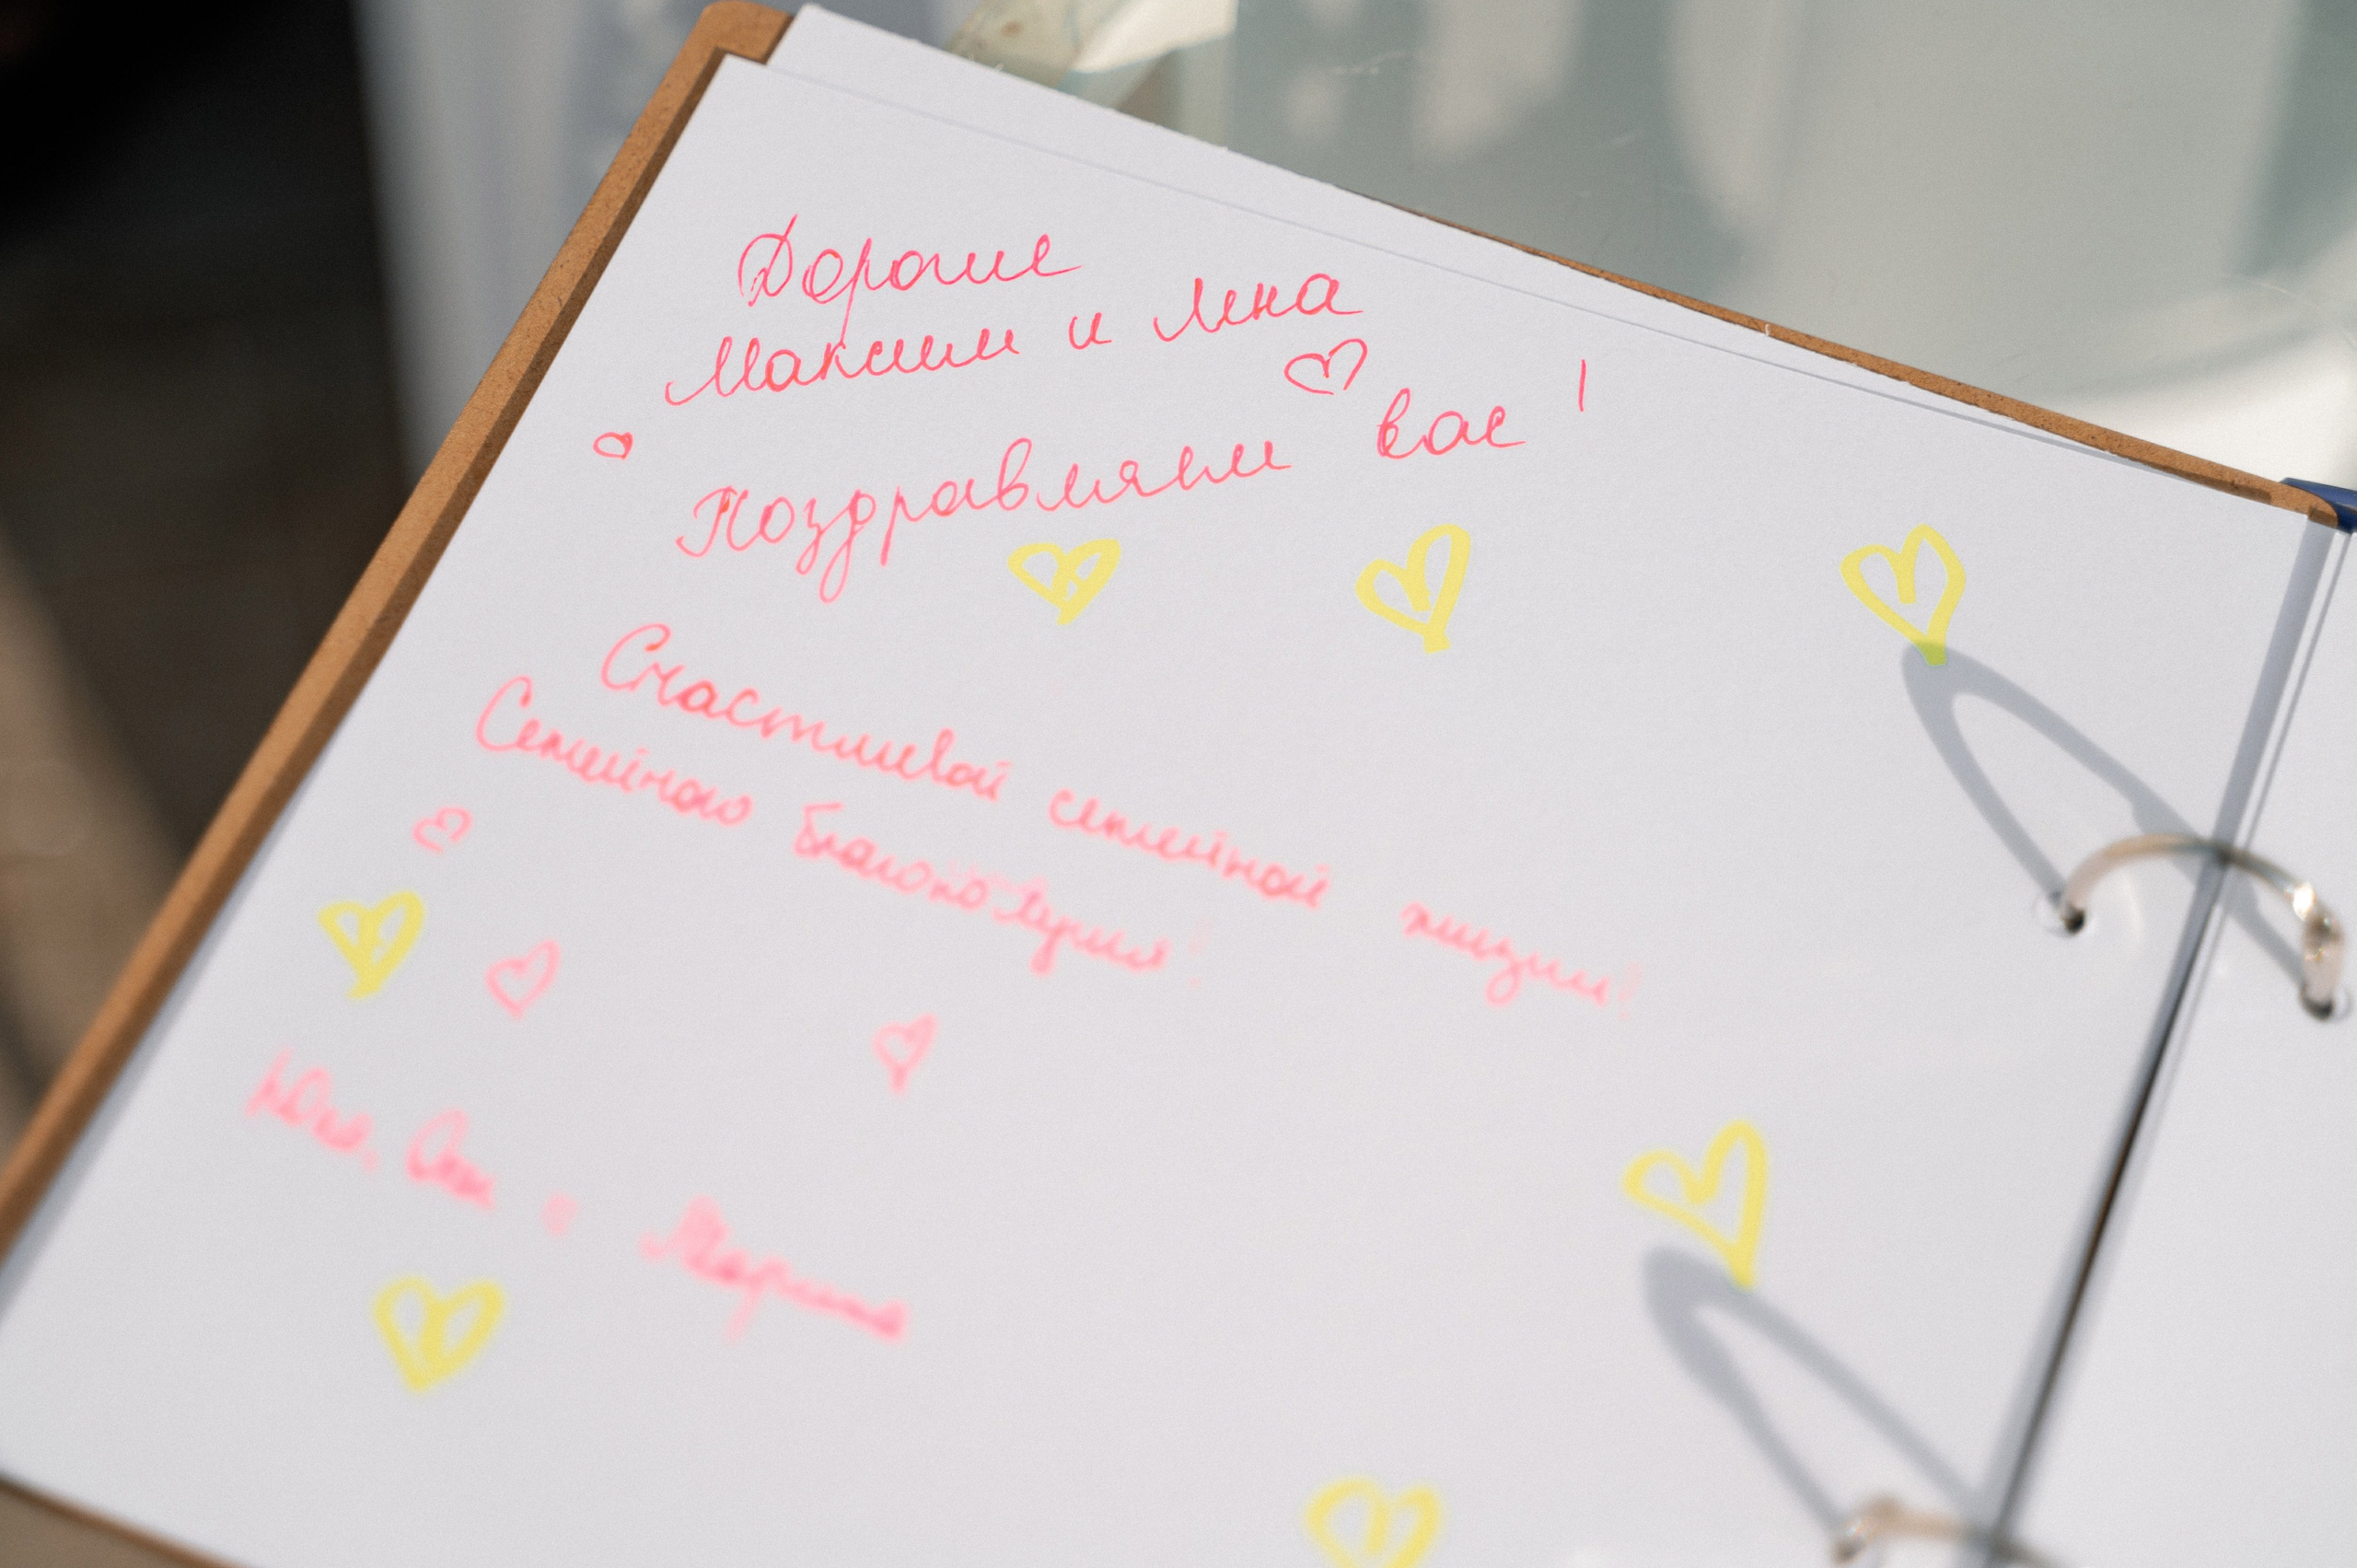 Дорогие
Максим и Лена
Поздравляем вас!
Счастливой семейной жизни!
Семейного благополучия!
Юля, и Марина